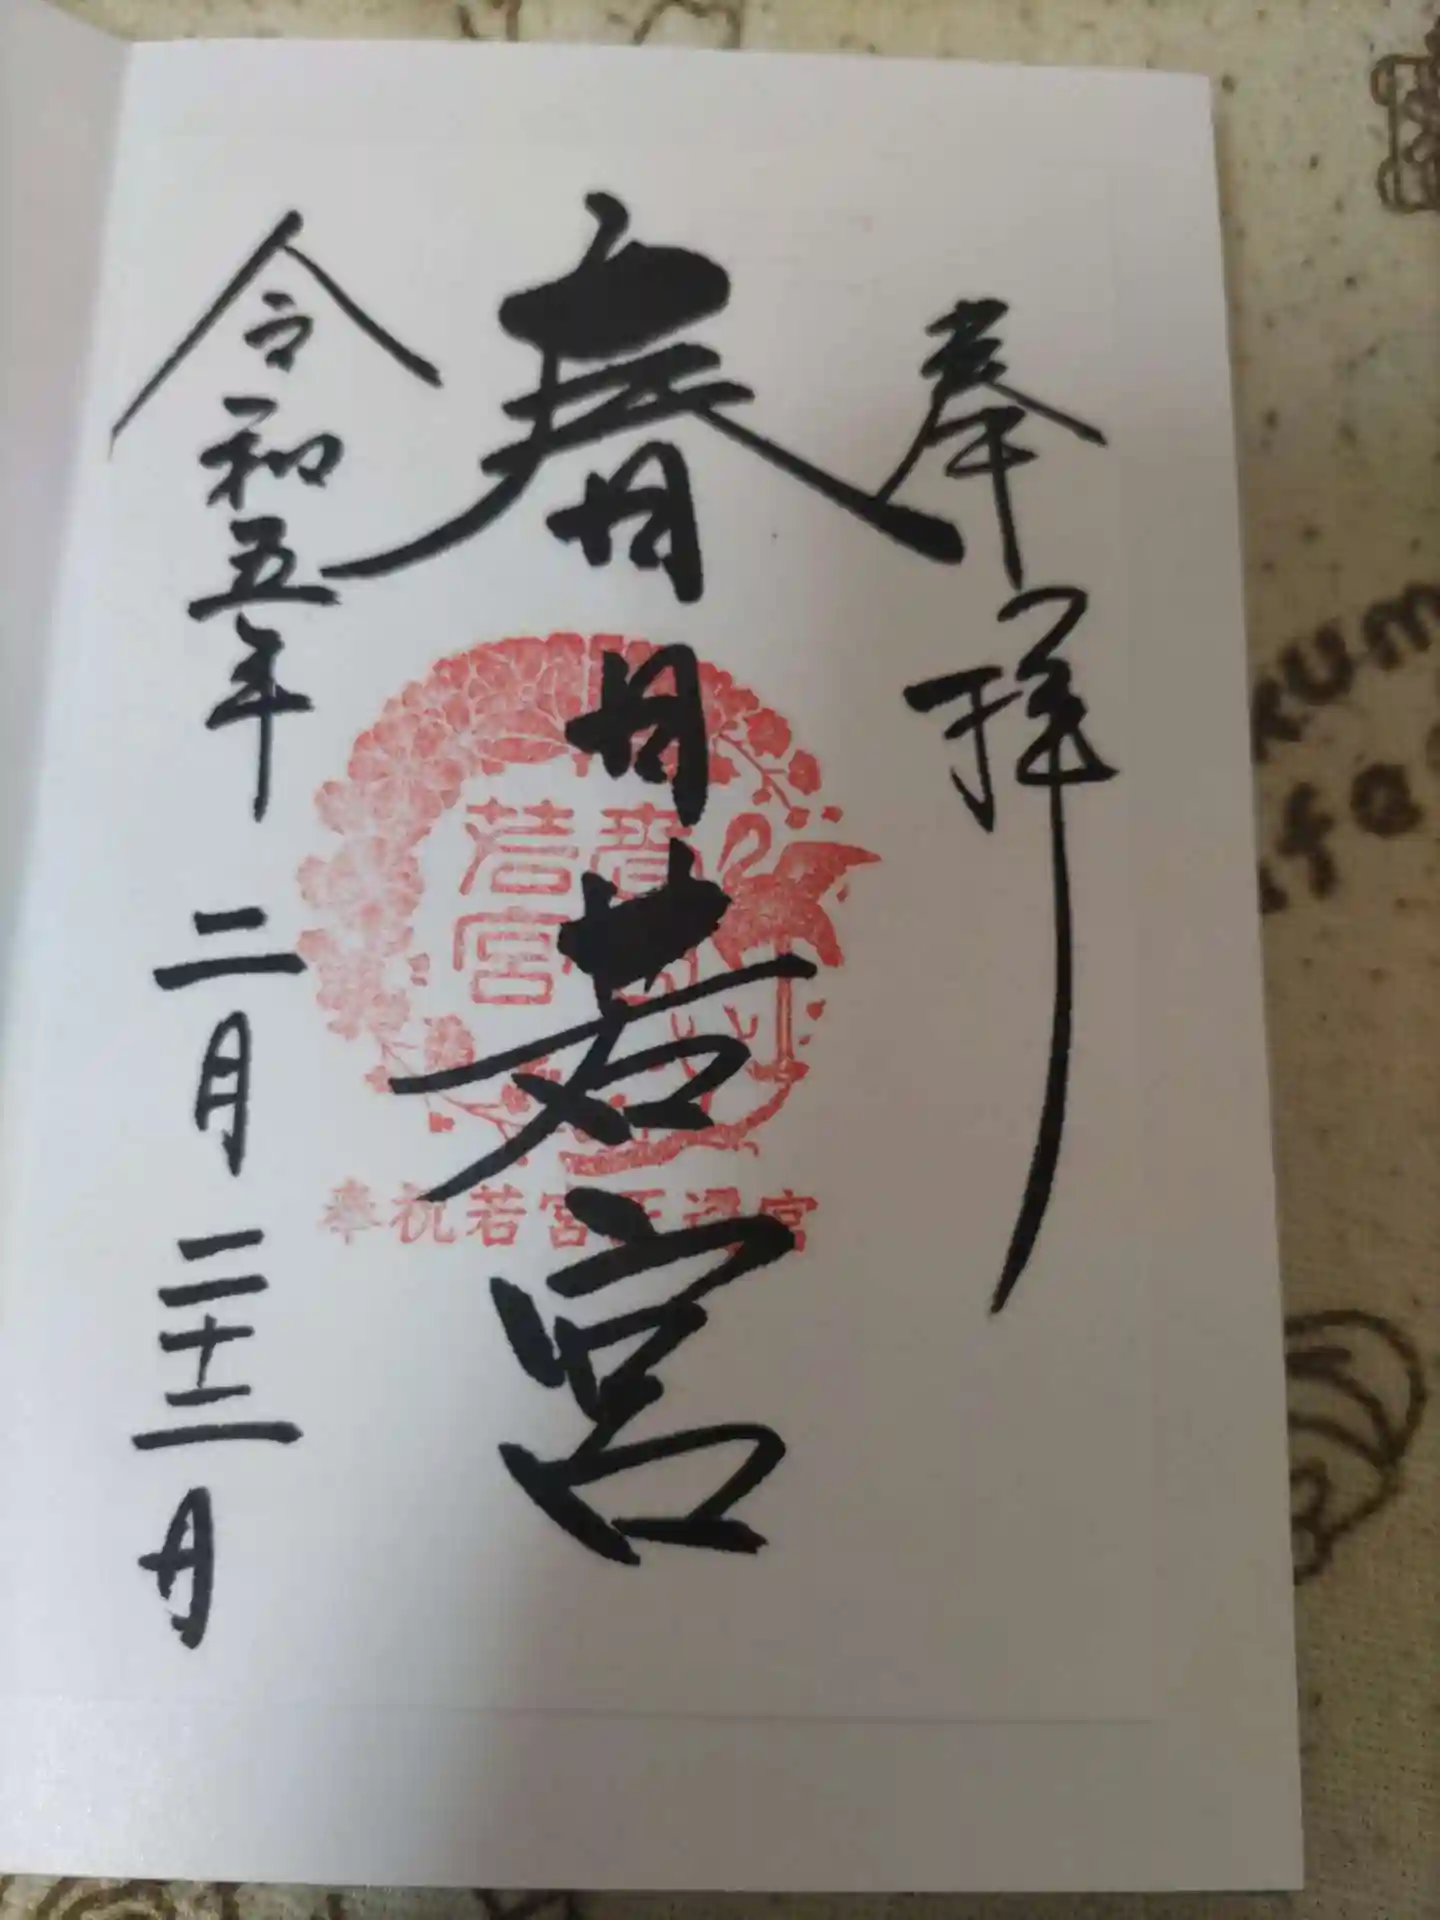 奉拝
春日若宮
令和五年 二月 二十二日
若宮
奉祝若宮正遷宮